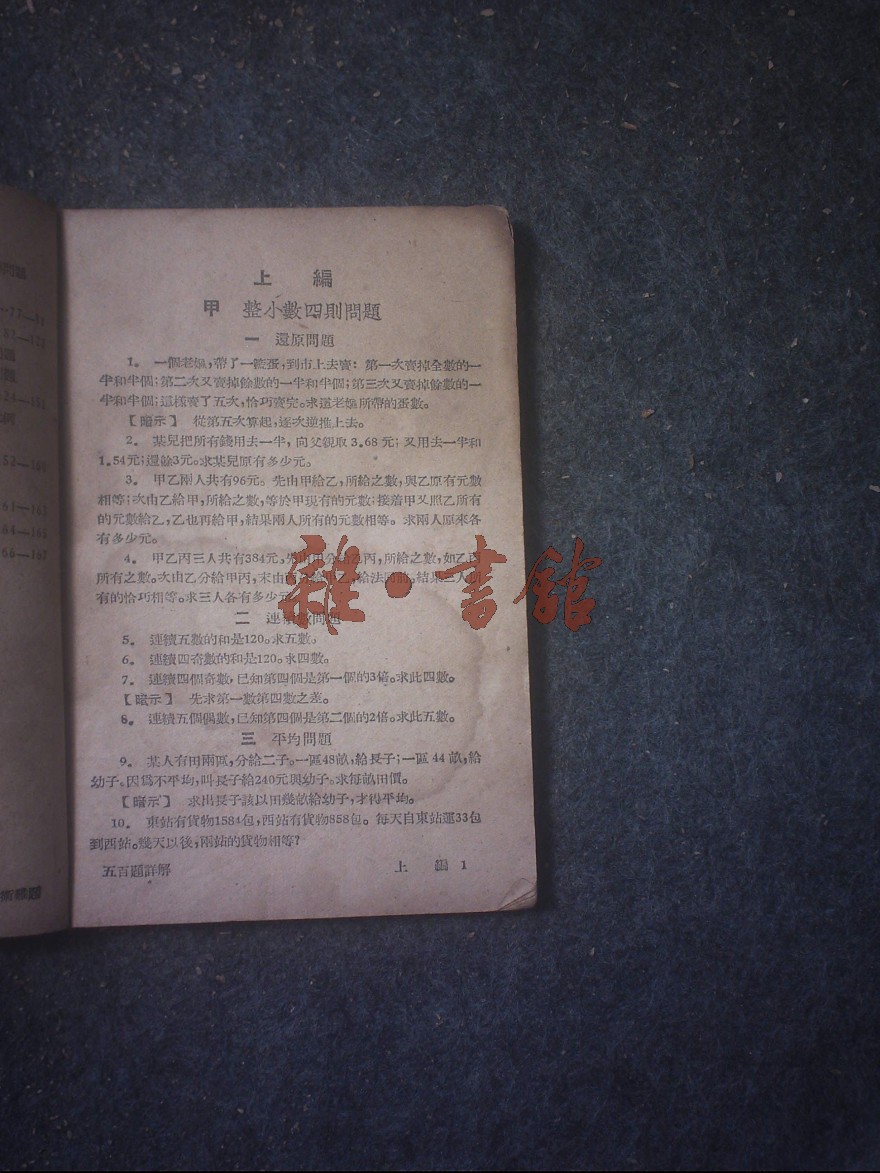 上 編
甲 整小數四則問題
一 還原問題
1。 一個老嫗,帶了一籃蛋,到市上去賣: 第一次賣掉全數的一
半和半個;第二次又賣掉餘數的一半和半個;第三次又賣掉餘數的一
半和半個;這樣賣了五次,恰巧賣完。求這老嫗所帶的蛋數。
【暗示】 從第五次算起,逐次逆推上去。
2。 某兒把所有錢用去一半,向父親取3.68元;又用去一半和
1.54元;還餘3元。求某兒原有多少元。
3。 甲乙兩人共有96元。先由甲給乙,所給之數,與乙原有元數
相等;次由乙給甲,所給之數,等於甲現有的元數;接着甲又照乙所有
的元數給乙,乙也再給甲,結果兩人所有的元數相等。求兩人原來各
有多少元。
4。 甲乙丙三人共有384元,先由甲分給乙丙,所給之數,如乙丙
所有之數。次由乙分給甲丙,末由丙分給甲乙,給法同前。結果三人所
有的恰巧相等。求三人各有多少元
二 連續數問題
5。 連續五數的和是120。求五數。
6。 連續四奇數的和是120。求四數。
7。 連續四個奇數,已知第四個是第一個的3倍。求此四數。
【暗示】 先求第一數第四數之差。
8。 連續五個偶數,已知第四個是第二個的2倍。求此五數。
三 平均問題
9。 某人有田兩區,分給二子。一區48畝,給長子;一區44畝,給
幼子。因爲不平均,叫長子給240元與幼子。求每畝田價。
【暗示】 求出長子該以田幾畝給幼子,才得平均。
10。 東站有貨物1584包,西站有貨物858包。每天自東站運33包
到西站。幾天以後,兩站的貨物相等?
五百題詳解 上 編 1
雜·書館